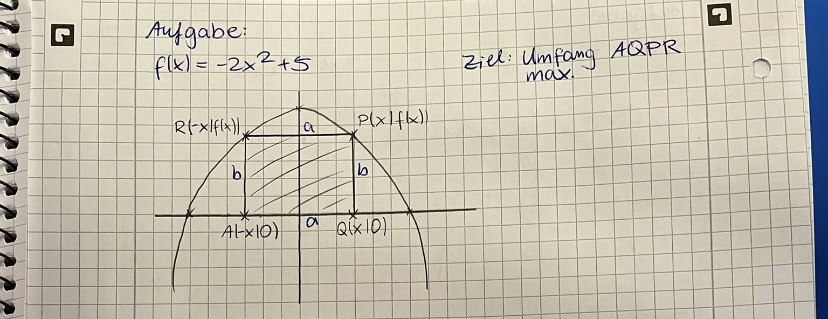 Aufgabe:
f(x) = -2x²+5
Ziel: Umfang AQPR
max.
R(-x|f(x))
a
P(x|f(x))
b
b
A(-x|0)
a
Q(x|0)